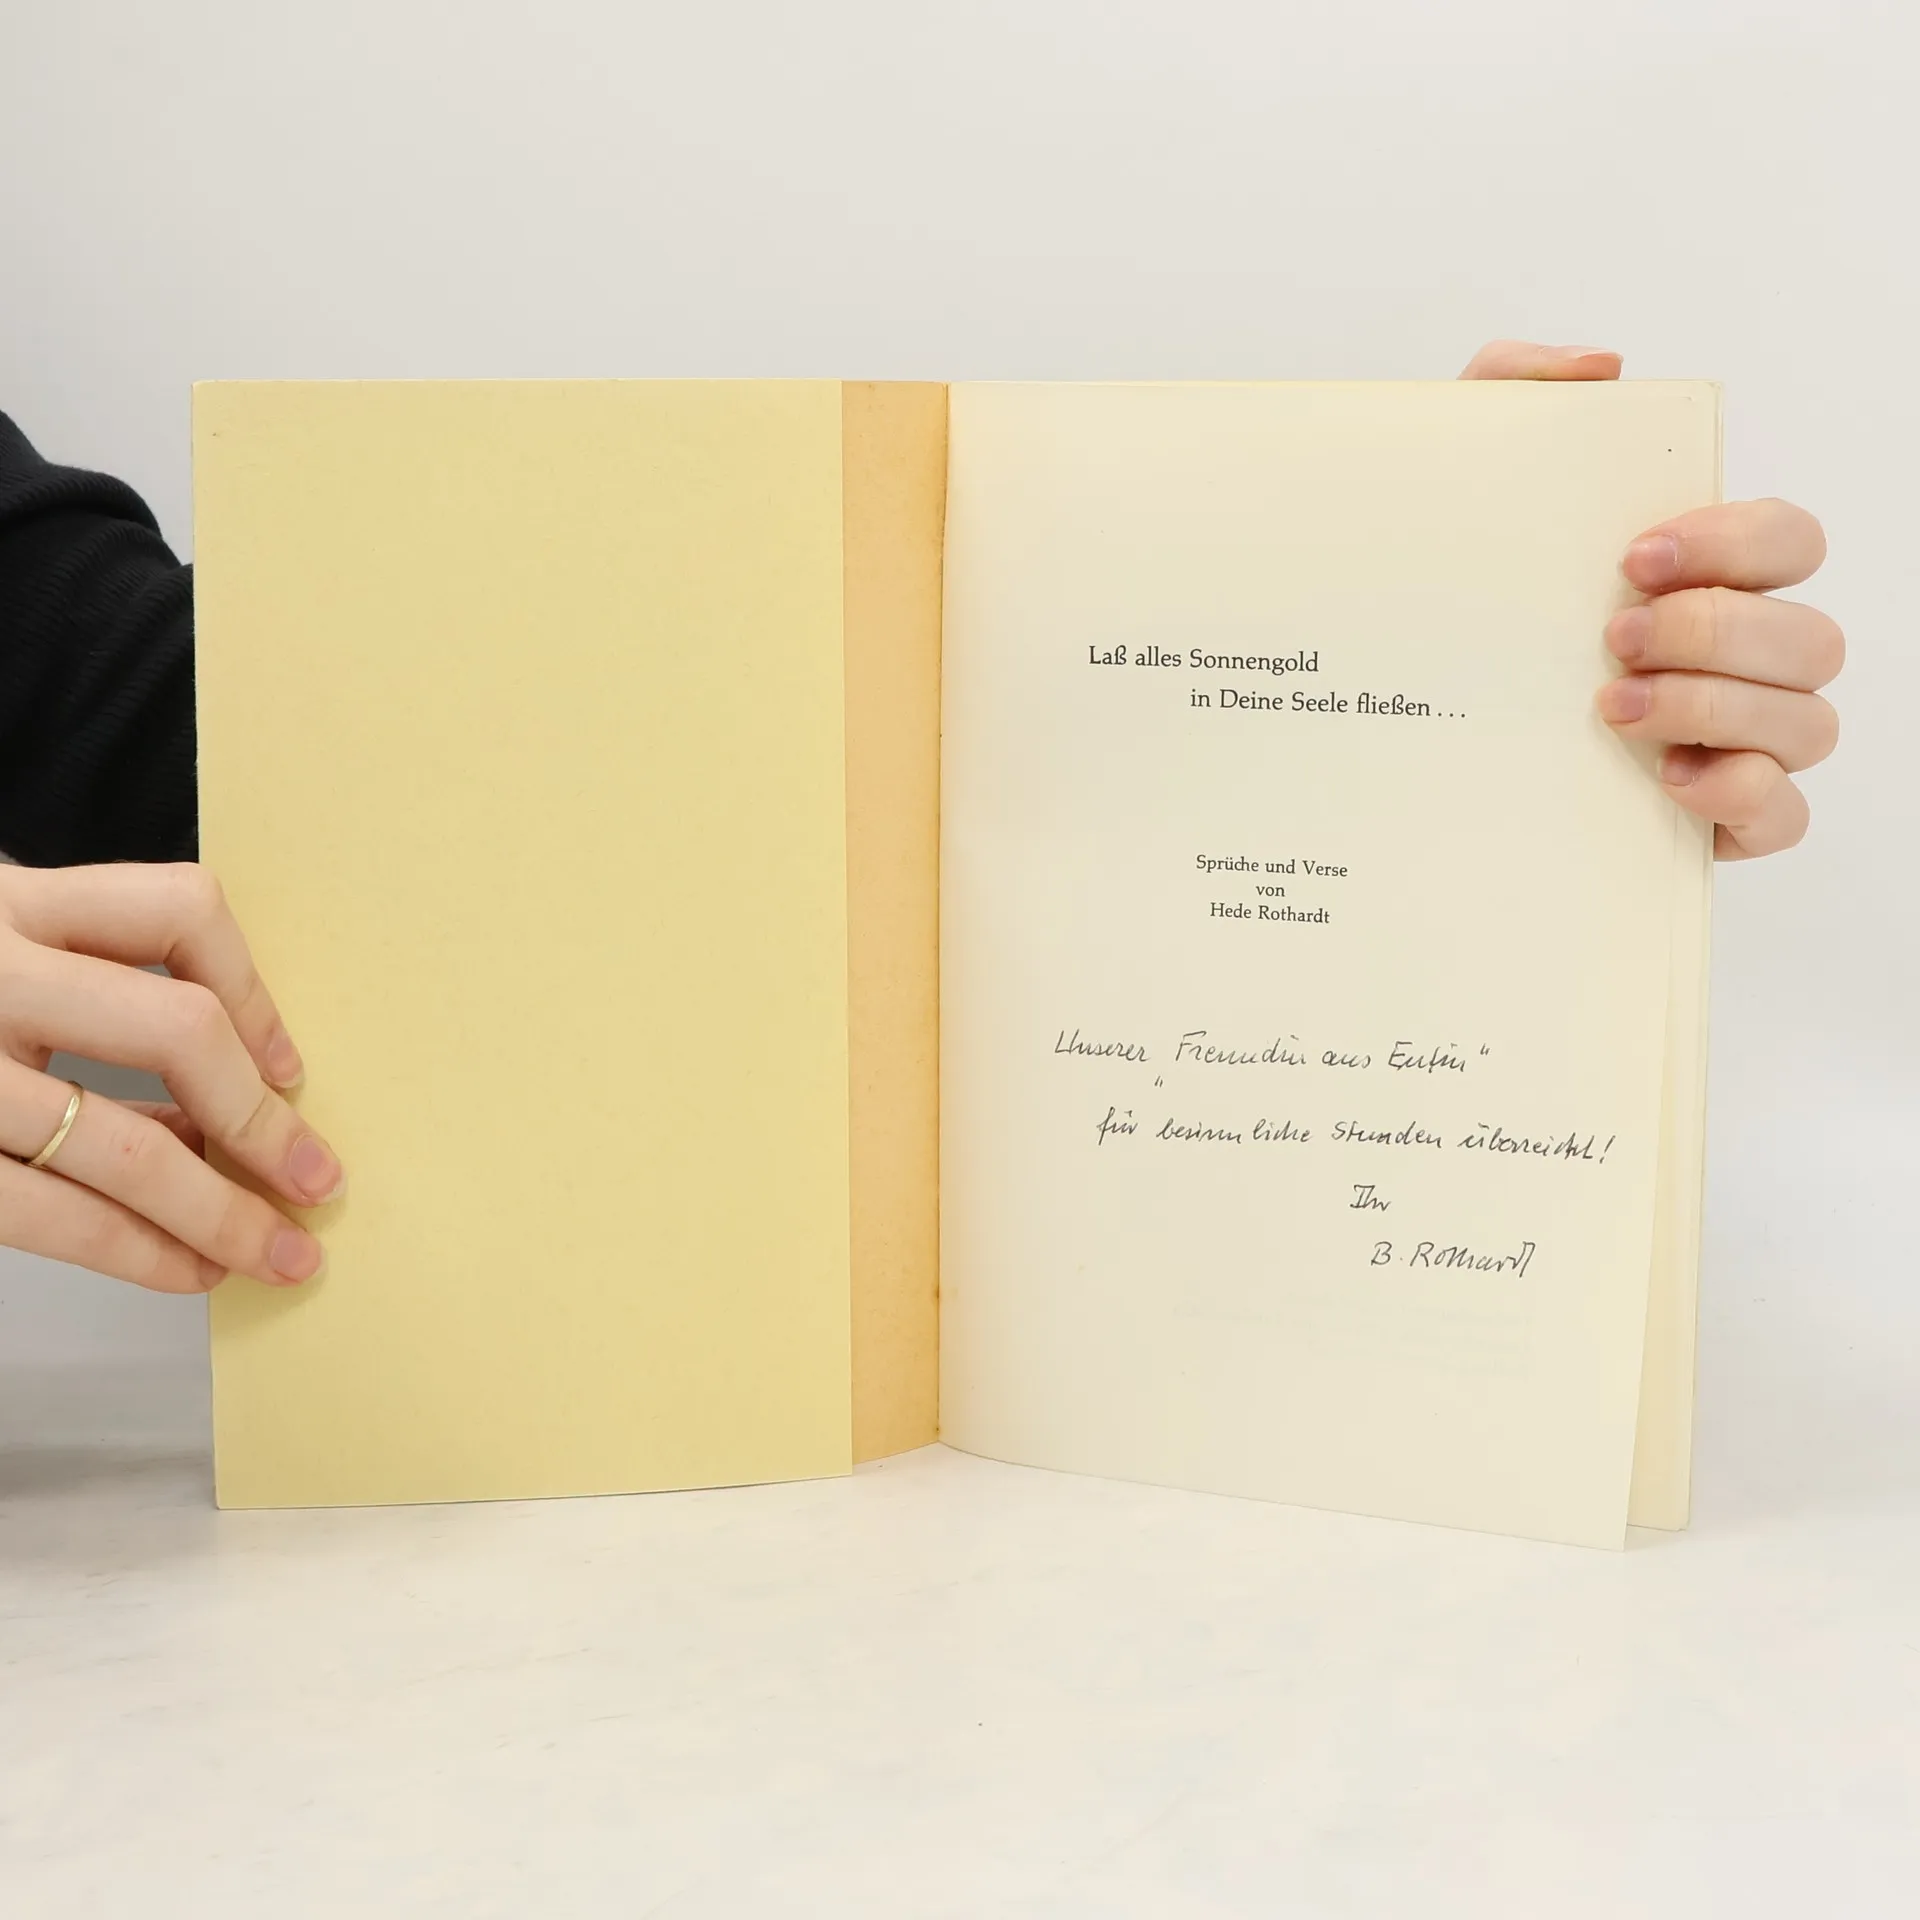 Laß alles Sonnengold
in Deine Seele fließen...
Sprüche und Verse
von
Hede Rothardt
Unserer „Freundin aus Eutin“
für besinnliche Stunden überreicht!
Ihr
B. Rothardt